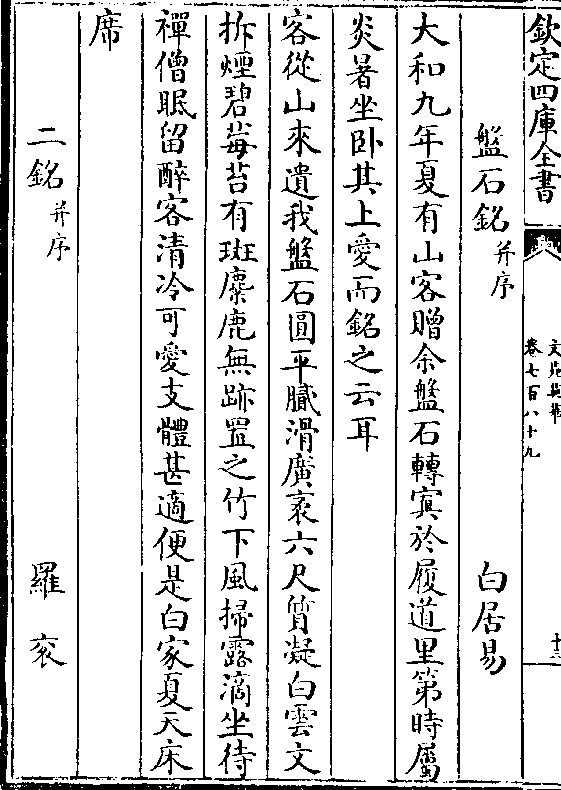 欽定四庫全書
文苑英華
卷七百八十九
十三
盤石銘并序
白居易
大和九年夏有山客贈余盤石轉寘於履道里第時屬
炎暑坐卧其上愛而銘之云耳
客從山來遺我盤石圓平膩滑廣袤六尺質凝白雲文
拆煙碧莓苔有斑麋鹿無跡置之竹下風掃露滴坐待
禪僧眠留醉客清冷可愛支體甚適便是白家夏天床
席
二銘并序
羅衮